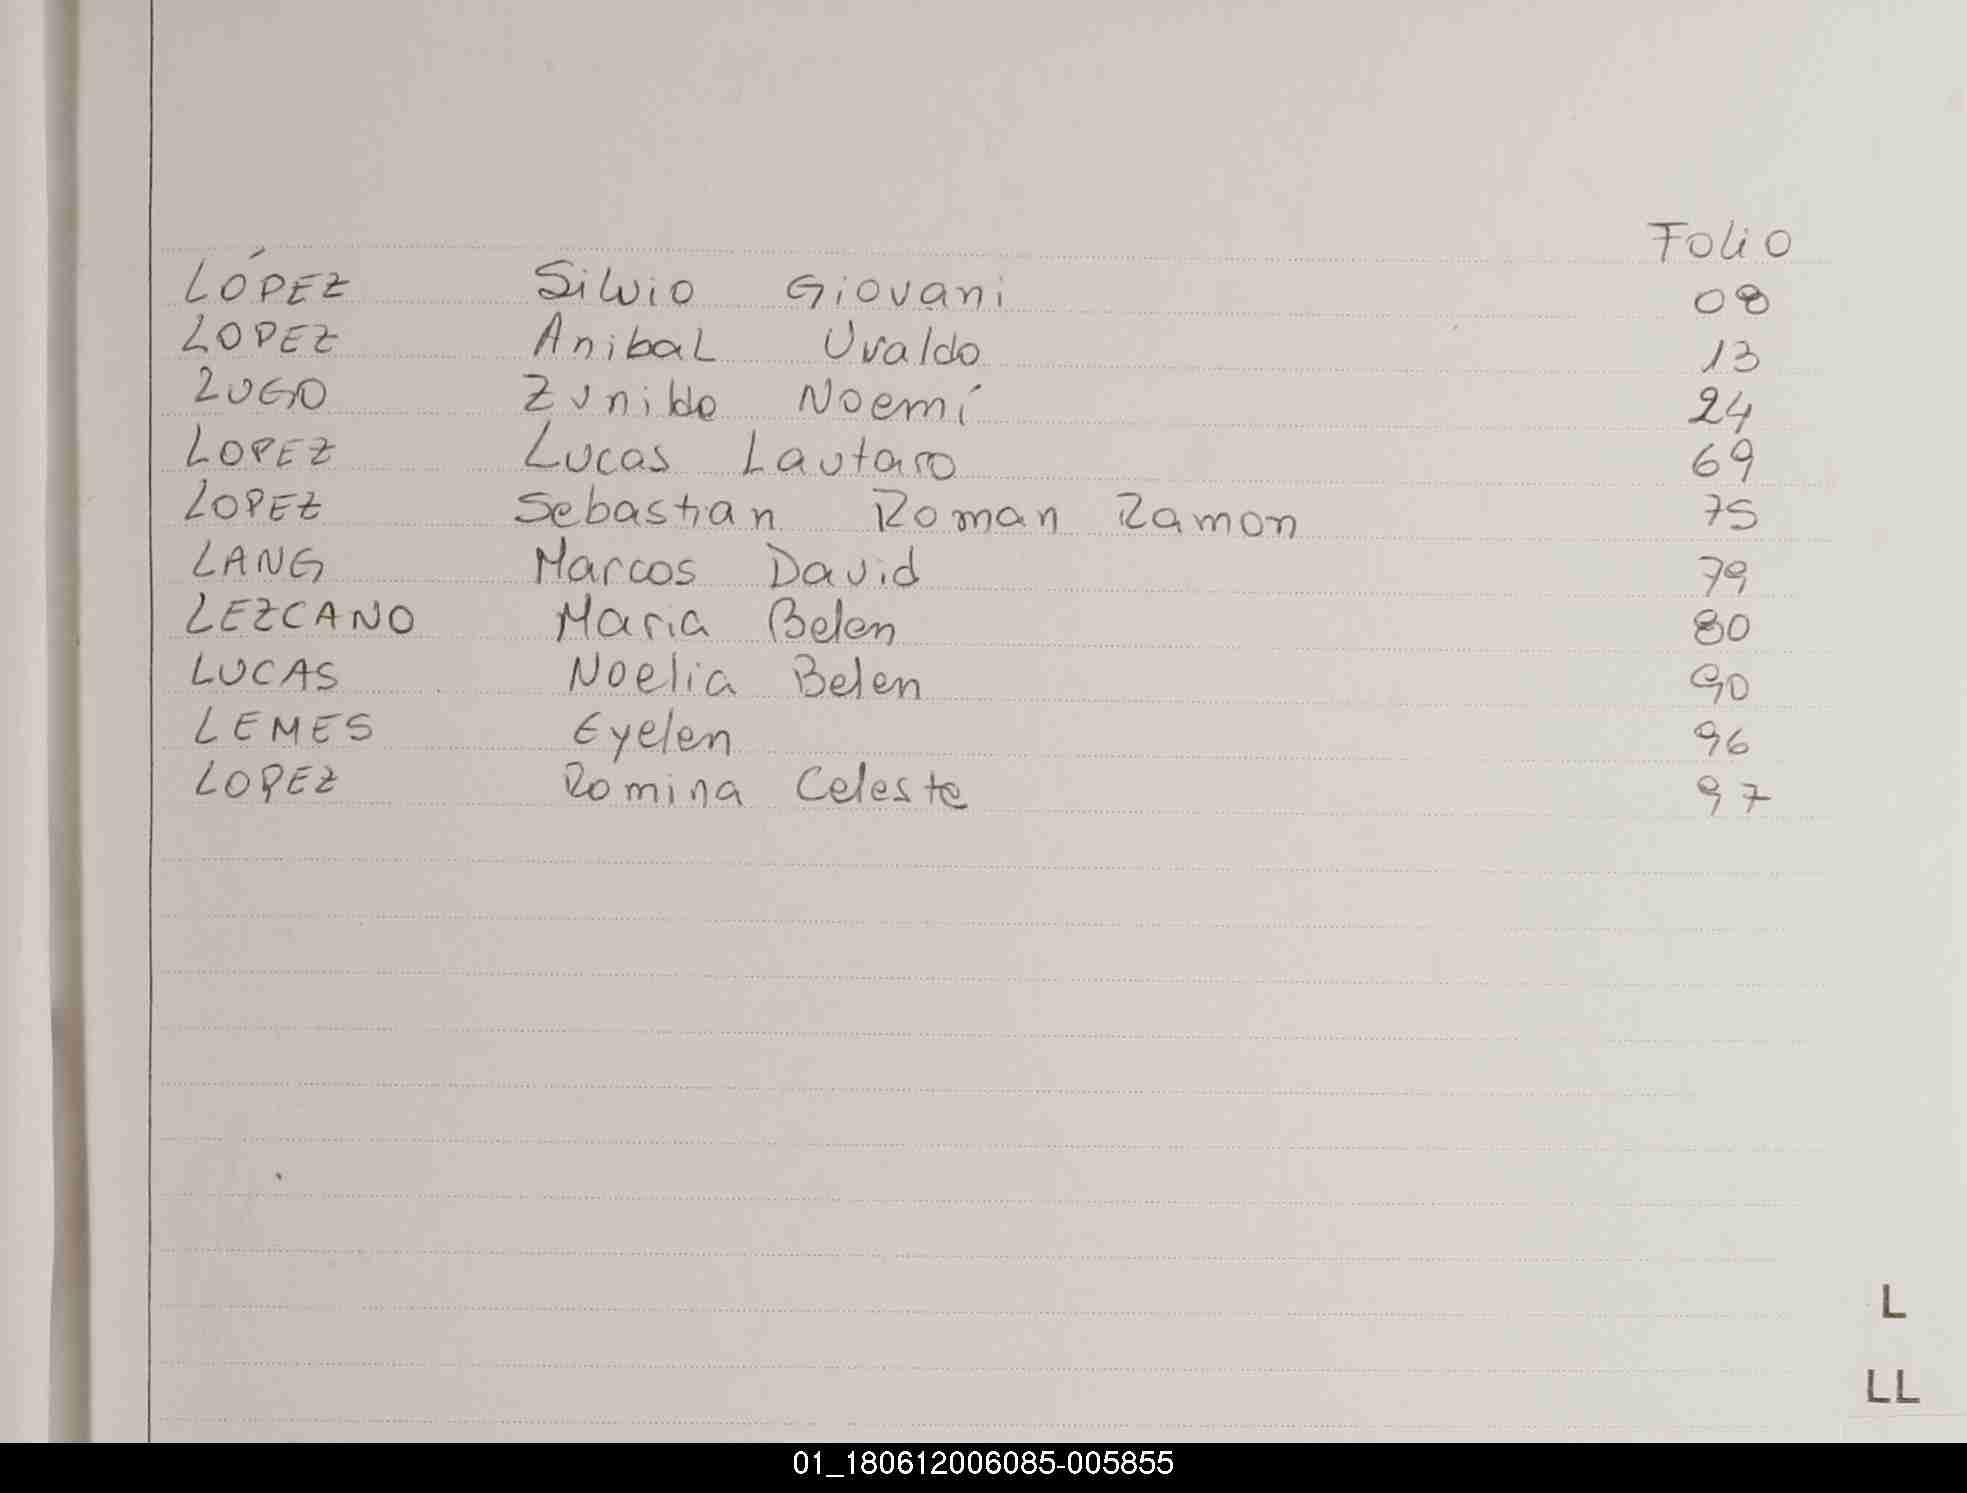 Folio
LÓPEZ Silvio Giovani 08
LOPEZ Anibal Uvaldo 13
LUGO Zunilde Noemí 24
LOPEZ Lucas Lautaro 69
LOPEZ Sebastian Roman Ramon 75
LANG Marcos David 79
LEZCANO Maria Belen 80
LUCAS Noelia Belen 90
LEMES Eyelen 96
LOPEZ Romina Celeste 97
L
LL
01_180612006085-005855